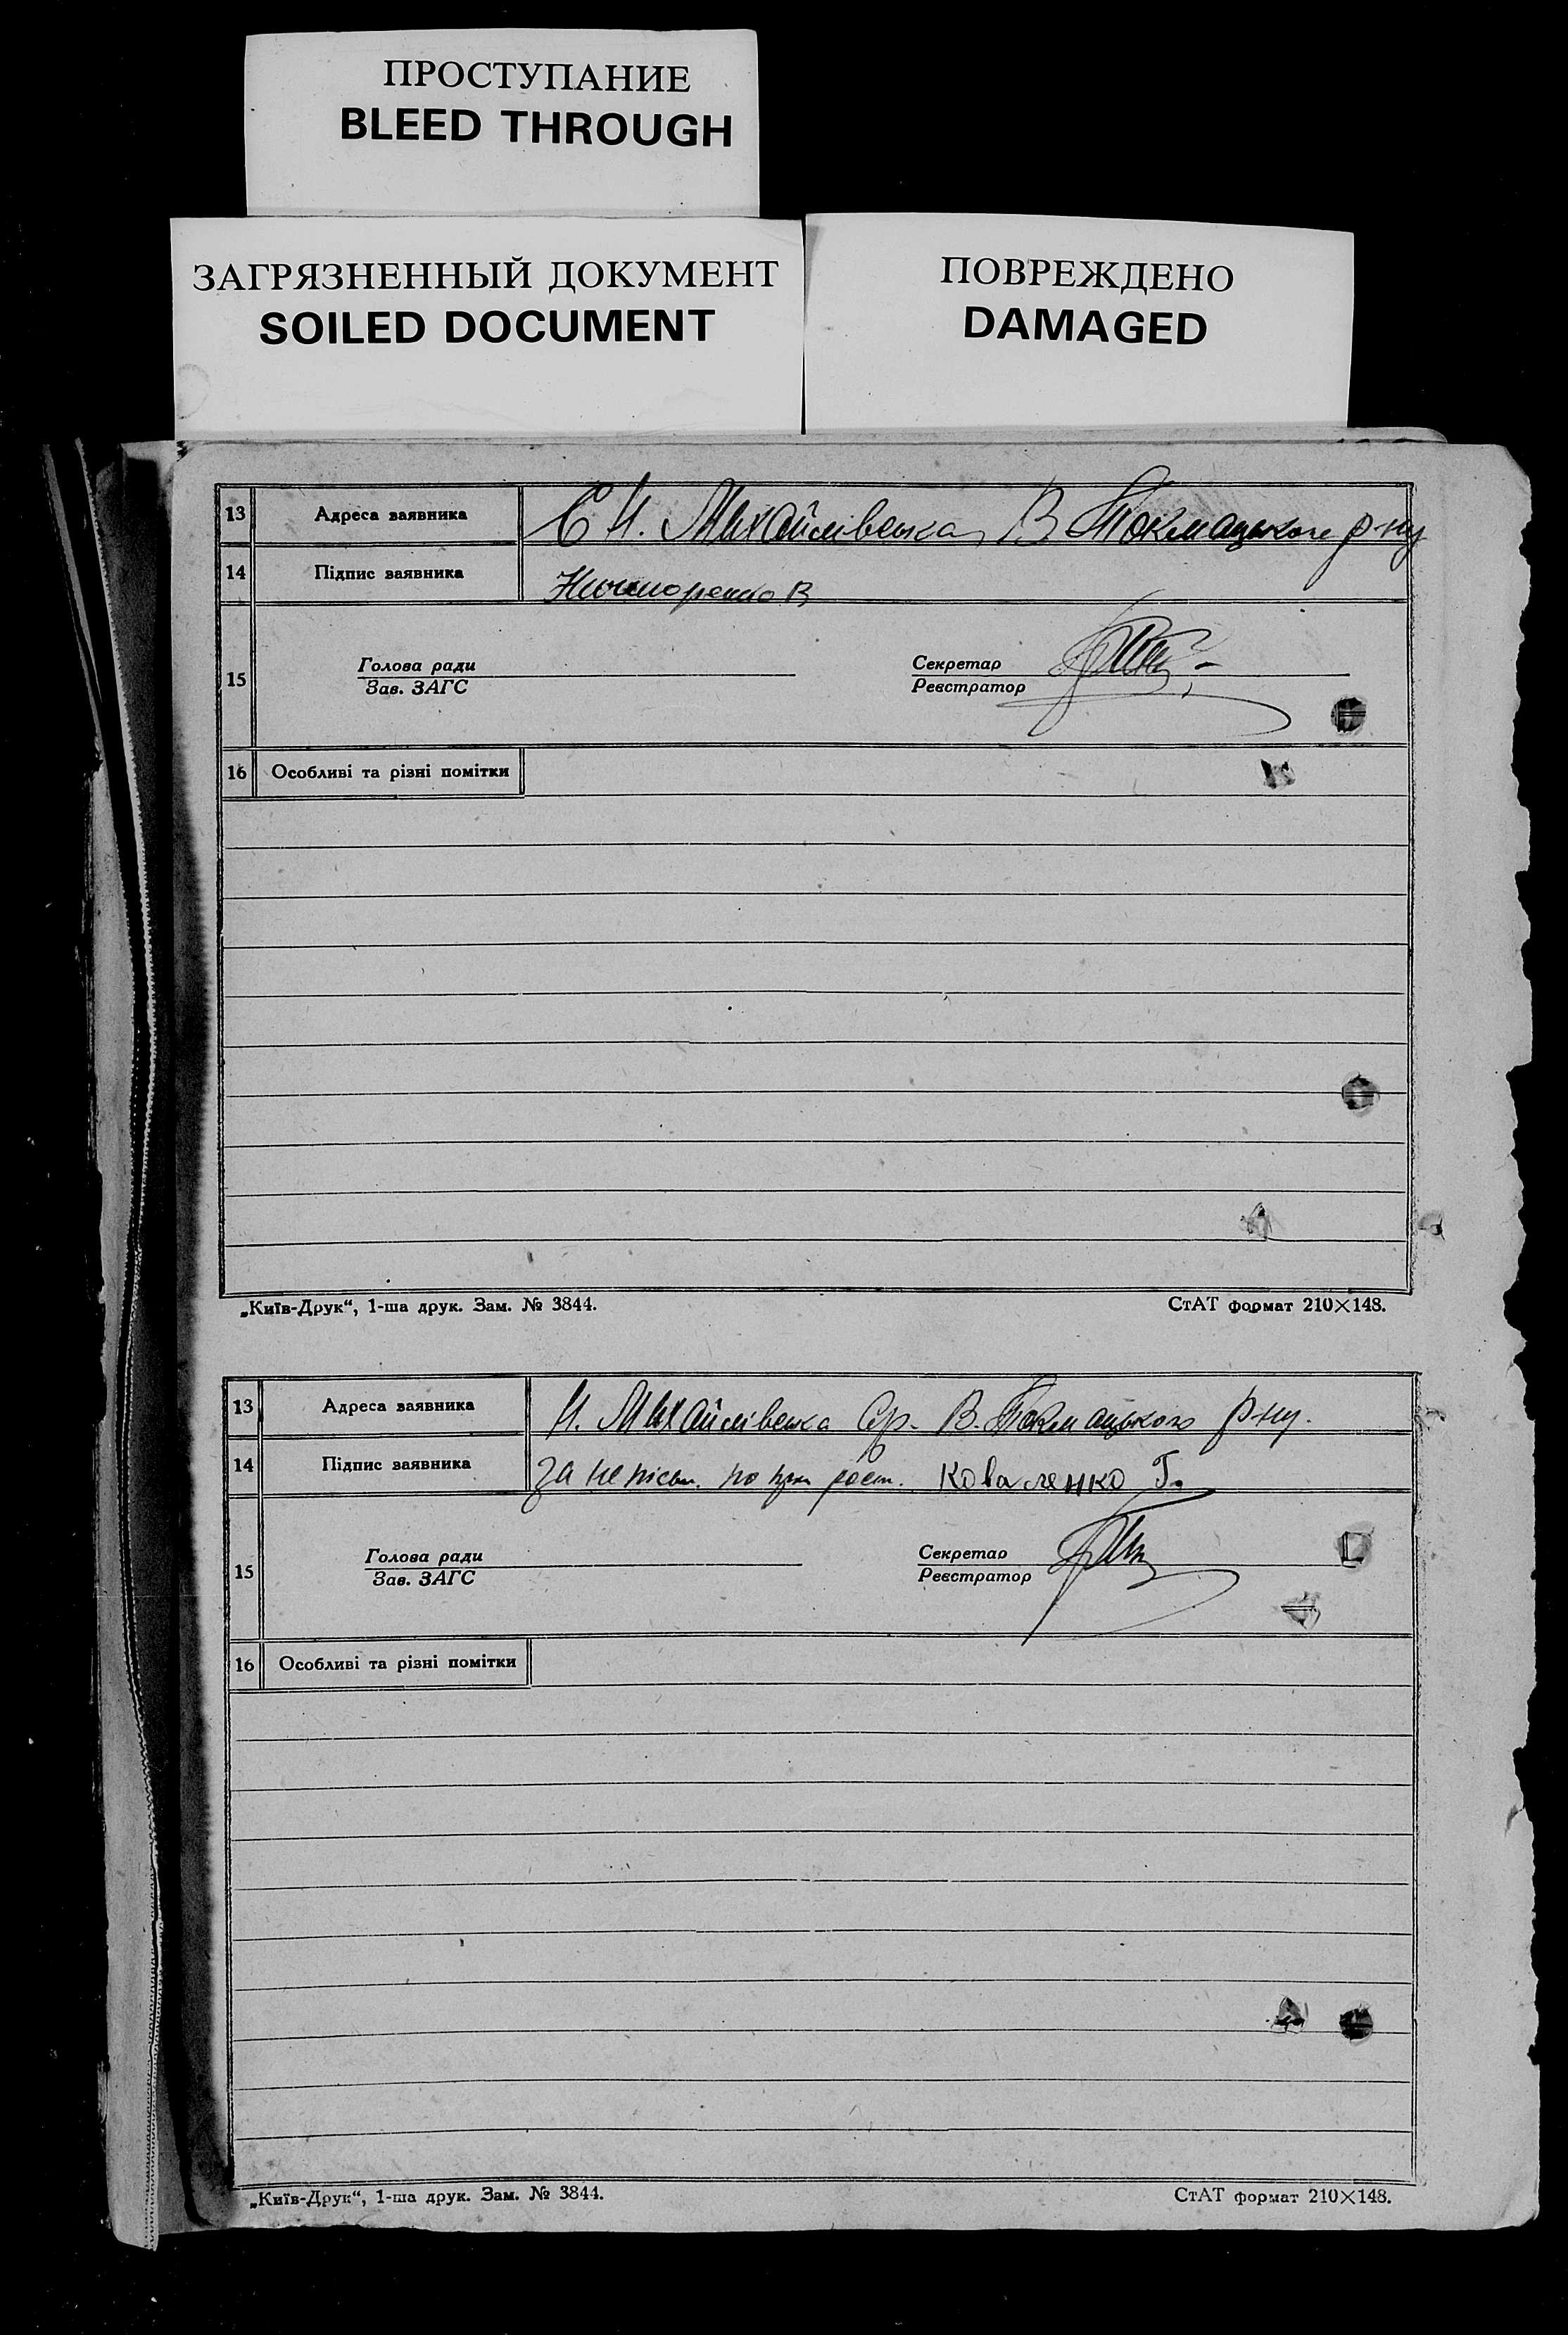 ПРОСТУПАНИЕ
BLEED THROUGH
ЗАГРЯЗНЕННЫЙ ДОКУМЕНТ
SOILED DOCUMENT
ПОВРЕЖДЕНО
DAMAGED
13 Адреса заявника С Н. Михайлівська В Токмацького р-ну
14 Підпис заявника
15 Голова ради Секретар
Зав. ЗАГС Реєстратор
16 Особливі та різні помітки
„Київ-Друк“, 1-ша друк. Зам. № 3844. СтАТ формат 210×148.
13 Адреса заявника Н. Михайлівська В. Токмацького р-ну.
14 Підпис заявника за непісьм. по Коваленко Г.
15 Голова ради Секретар
Зав. ЗАГС Реєстратор
16 Особливі та різні помітки
„Київ-Друк“, 1-ша друк. Зам. № 3844. СтАТ формат 210×148.